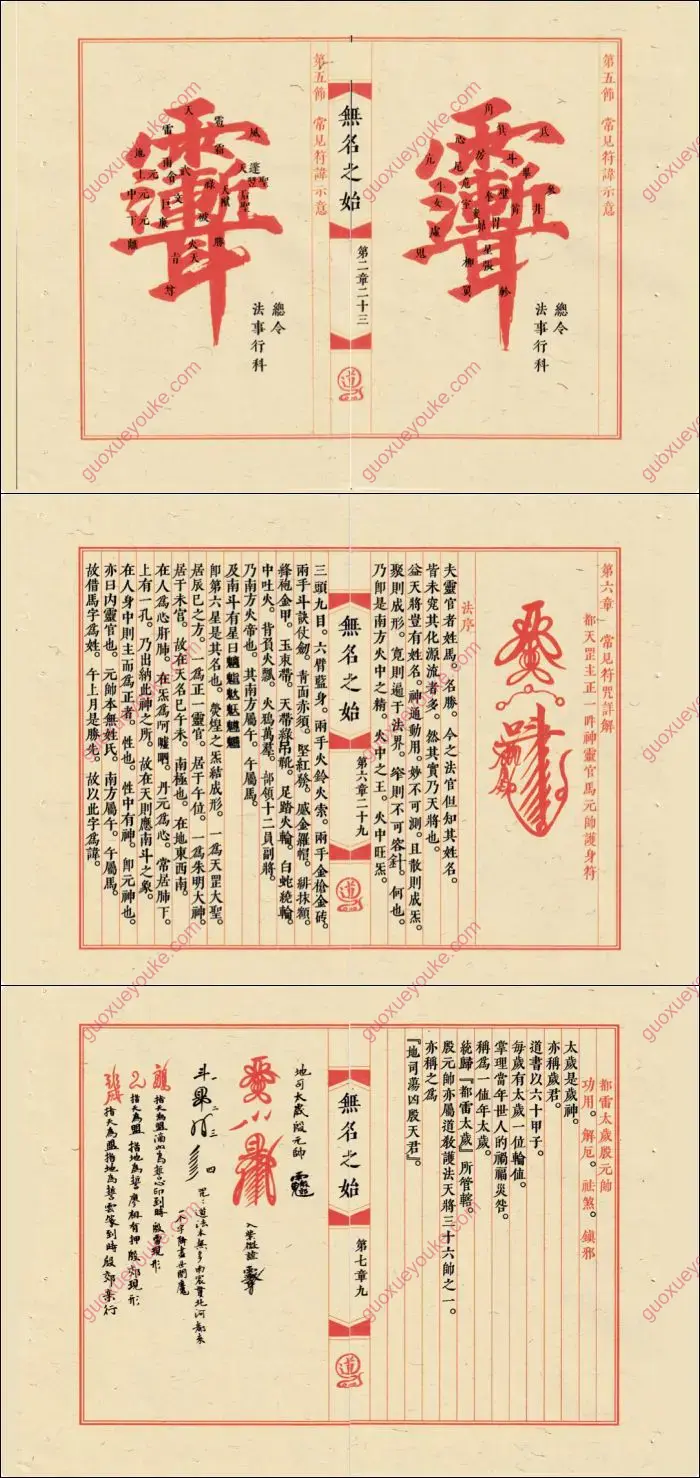 第五節 常見符諱示意
角
箕
氐
心
房
斗
尾
畢
參
井
危
壁
奎
亢
牛
女
室
胃
虛
星
張
鬼
柳
翼
軫
總令
法事行科
無名之始
第二章二十三
道
第五節 常見符諱示意
天
雷
雹
風
霜
地
武
文
破
巨
廉
祿
火
天
勝
離
總令
法事行科
第六章 常見符咒詳解
都天罡主正一吽神靈官馬元帥護身符
法序
夫靈官者姓馬。名勝。今之法官但知其姓名。
皆未究其化源流者多。然其實乃天將也。
益天將豈有姓名。神通動用。妙不可測。且散則成炁。
聚則成形。寬則遍于法界。窄則不可容針。何也。
乃即是南方火中之精。火中之王。火中旺炁。
無名之始
第六章二十九
道
三頭九目。六臂藍身。兩手火鈴火索。兩手金槍金磚。
兩手斗訣仗劒。青面赤須。堅紅發。戚金羅帽。緋抹額。
絳袍金甲。玉束帶。天帶綠吊靴。足踏火輪。白蛇繞輪。
中吐火。背負火瓢。火鴉萬羣。部領十二員副將。
乃南方火帝也。其南方屬午。午屬馬。
及南斗有星曰魒
即第六星是其名也。熒煌之炁結成形。一為天罡大聖。
居辰巳之方。一為正一靈官。居于午位。一為朱明大神。
居于未宮。故在天名巳午未。南極也。在地東西南。
在人為心肝肺。在炁為阿噓呬。丹元為心。常居肺下。
上有一孔。乃出納此神之所。故在天則應南斗之象。
在人身中則主而為正者。性也。性中有神。即元神也。
亦曰內靈官也。元帥本無姓氏。南方屬午。午屬馬。
故借馬字為姓。午上月是勝先。故以此字為諱。
都雷太歲殷元帥
功用。解厄。祛煞。鎮邪
太歲是歲神。
亦稱歲君。
道書以六十甲子。
每歲有太歲一位輪值。
掌理當年世人的禍福災咎。
稱為一值年太歲。
統歸『都雷太歲』所管轄。
殷元帥亦屬道教護法天將三十六帥之一。
亦稱之為
『地司蕩凶殷天君』。
無名之始
第七章九
道
地司太歲殷元帥
一二三四
咒:道法本無多南宸貫北河都來
一个字降盡世間魔
指天為盟滴血為誓心印到時殷雷現形
指天為盟指地為誓廖祖有押殷郊現形
指天為盟指地為誓雲篆到時殷郊奉行
guoxueyouke.com
guoxueyouke.com
guoxueyouke.com
guoxueyouke.com
guoxueyouke.com
guoxueyouke.com
guoxueyouke.com
guoxueyouke.com
guoxueyouke.com